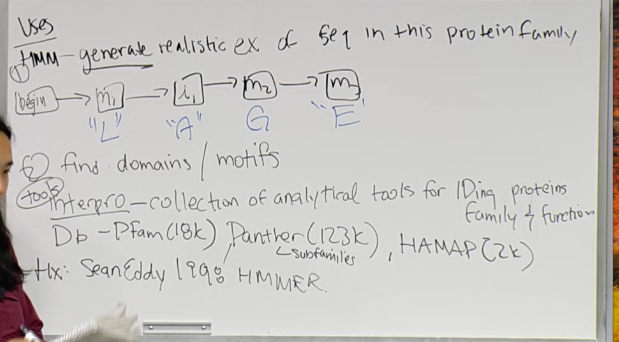 Uses
① HMM - generate realistic ex of seq in this protein family
begin → m₁ → i₁ → m₂ → m₃
"L" "A" G "E"
② find domains / motifs
tools
Interpro - collection of analytical tools for IDing proteins
family & function
Db - Pfam (18k), Panther (123k), HAMAP (2k)
subfamiles
Hx: Sean Eddy 1998 HMMER.